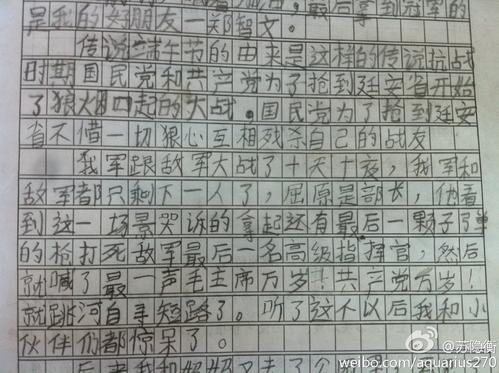 最后拿到冠军的
是我的好朋友一郑智文。
传说端午节的由来是这样的传说抗战
时期国民党和共产党为了抢到延安省开始
了狼烟四起的大战。国民党为了抢到延安
省不惜一切狠心互相残杀自己的战友
我军跟敌军大战了十天十夜，我军和
敌军都只剩下一人了，屈原是部长，他看
到这一场景哭诉的拿起还有最后一颗子弹
的枪打死敌军最后一名高级指挥官，然后
就喊了最一声毛主席万岁！共产党万岁！
就跳河自寻短路了。听了这个以后我和小
伙伴们都惊呆了。
后来我和妈妈又去了
@苏隐衡
weibo.com/aquarius270